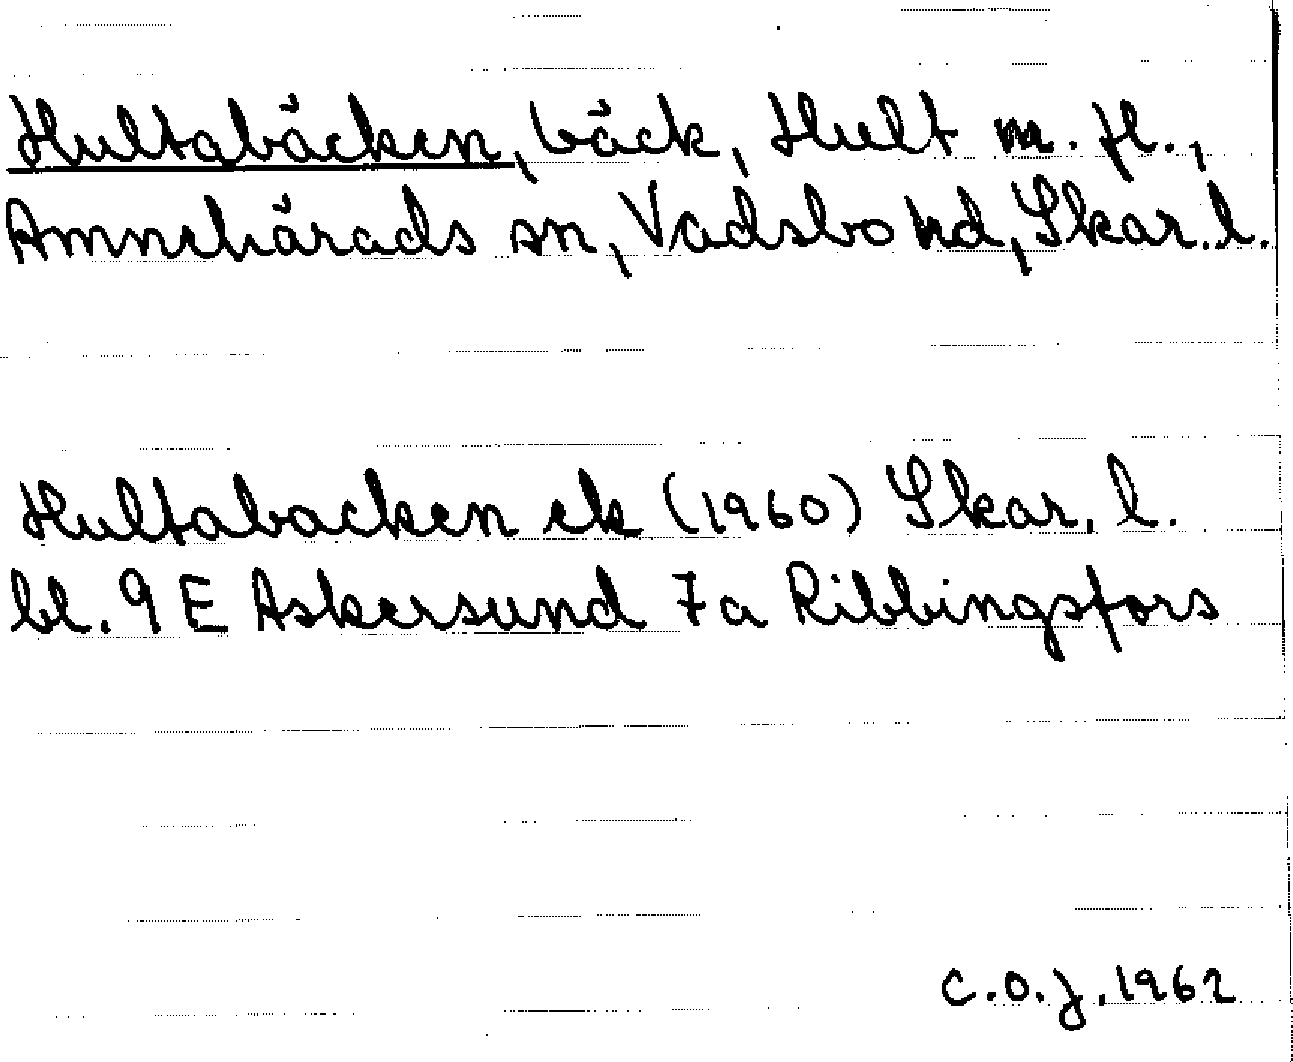 Hultabäcken, bäck, Hult m. fl.,
Amnehärads sn, Vadsbo hd, Skar. l.
Hultabacken ek (1960) Skar. l.
bl. 9 E Askersund 7a Ribbingsfors
C.O.J. 1962